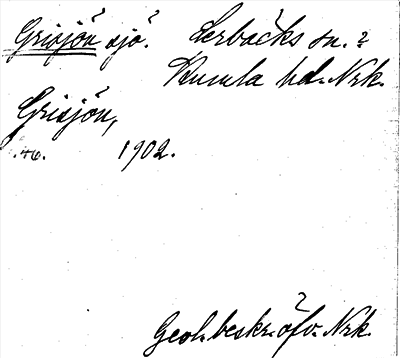 Grisjön sjö. Lerbäcks sn. ?
Kumla hd. Nrk.
Grisjön,
s. 46. 1902.
Geol. beskr. öfv. Nrk.